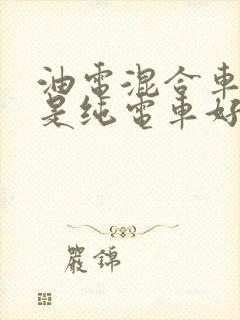 油電混合車
是純電車好
嚴錦